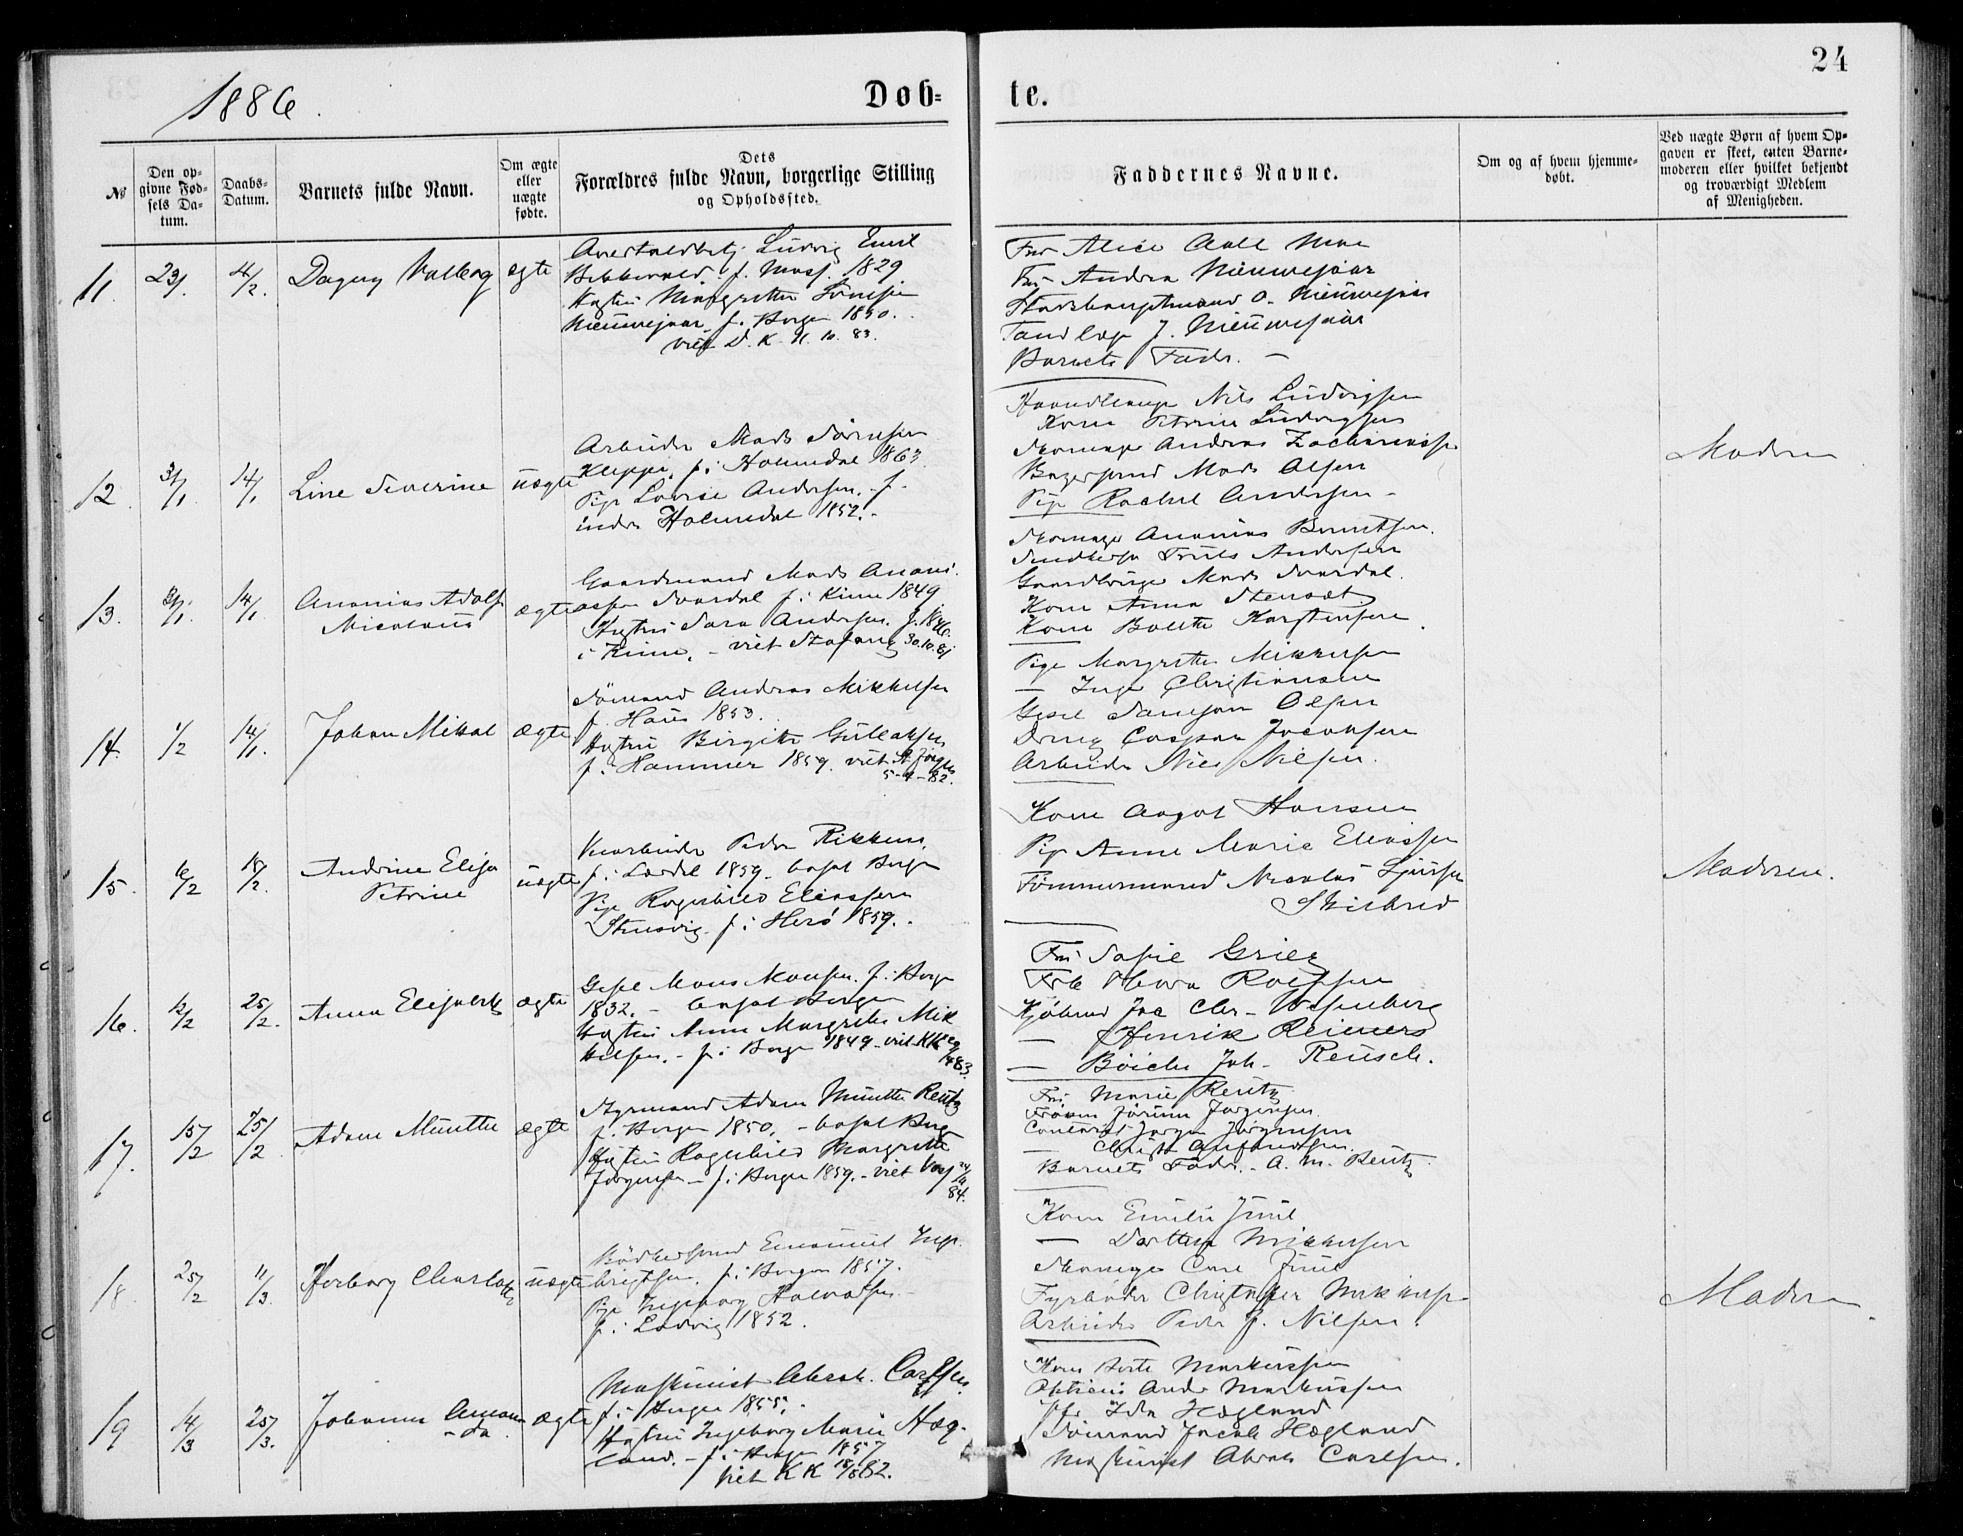 24
1886.
Døb-
te.
№
Den op-
givne Fød-
sels Da-
tum.
Daabs-
Datum.
Barnets fulde Navn.
Om ægte
eller
uægte
fødte.
Dets
Forældres fulde Navn, borgerlige Stilling
og Opholdssted.
Faddernes Navne.
Om og af hvem hjemme-
døbt.
Ved uægte Børn af hvem Op-
gaven er skeet, enten Barne-
moderen eller hvilket bekjendt
og troværdigt Medlem
af Menigheden.
11.
4/2.
Dagny Valborg
ægte
Ludvig Emil
f. Moss. 1829
Hustru Margrethe
Nieuwejaar f. Bergen 1850.
viet D. K. 11. 10. 83.
Fru Alice
Fru Andrea Nieuwejaar
Stadshauptmand O. Nieuwejaar
Tandlæge J. Nieuwejaar
Barnets Fader. —
12.
31/1
14/1
Line Severine
uægte
Arbeider Mads Sørensen
Kleppe, f. i Holmedal 1863.
Pige Lovise Andersen, f.
indre Holmedal 1852.
Nils Ludvigsen
Kone Petrine Ludvigsen
Skomager Andreas Zachariassen
Bagersvend Mads Olsen
Pige Rachel Andersen
Moderen
13.
14/1
Ananias Adolf
Nicolaus
ægte
Gaardmand Mads Anani-
assen Svardal f. i Kinn 1849
Hustru Sara Andersen f. 1846.
i Kinn. – viet Stavang 30.10.81
Skomager Ananias Berntsen.
Truls Andersen
Gaardbruger Mads Svardal.
Kone Anna Stensæt.
Kone Bolette Karstensen.
14.
1/2
14/1
Johan Mikal
ægte
Sømand Andreas Mikkelsen
f. Haus 1853.
Hustru Birgitte Gulaksen
f. Hammer 1859. viet St Jørgen
5-4-82.
Pige Margrethe Mikkelsen
— Inga Christiansen
Olsen
Dreng Caspar Jacobsen
Arbeider Nils Nilsen.
15.
6/2
18/2.
Andrine Elisa
Petrine
uægte
Peder Rikken.
f. i Lærdal 1859. bosat Bergen
Pige Ragnhild Eliassen
f. i Herø 1859.
Kone Aagot Hansen
Pige Anne Marie Eliassen
Tømmermand Nicolas
Skilbred
Moderen.
16.
12/2
25/2.
Anna Elisabeth
ægte
Mons Monsen. f. i Bergen
1832. – bosat Bergen
Hustru Anna Margrethe Mik-
kelsen. – f. i Bergen 1849 – viet KK
Fru Sofie Grieg
Kjøbmd Joa Chr. Wesenberg
— Henrik Reimers
— Joh. Reusch.
17.
15/2
25/2
Adam Munthe
ægte
Styrmand Adam Munthe Rentz
f. Bergen 1850. – bosat Bergen
Hustru Ragnhild Margrethe
Jørgensen – f. i Bergen 1859. – viet
84.
Fru Marie Rentz
Frøken Jørgensen.
Contorist Jørgen Jørgensen
Barnets Fader. – A. M. Rentz
18.
25/2
11/3.
Herborg Charlotte
uægte
Bødkersvend Emanuel Inge-
brigtsen. f. i Bergen 1857.
Pige Ingeborg Halvorsen
f. i Ladvig 1852.
Kone Emilie Juul
— Dorthea Mikkelsen
Skomager Carl Juul
Fyrbøder Christoffer Mikkelsen
Arbeider Peder J. Nilsen.
Moderen
19
14/3
25/3.
Johanne Aman-
da
ægte
Maskinist Abrah. Carlsen.
f. i Bergen 1855.
Hustru Ingeborg Marie Hæg-
land. – f. i Bergen 1857
viet KK
Kone Berte Markussen
Andr Markussen
Ida Hægland
Sømand Jacob Hægland
Maskinist Abrah Carlsen.